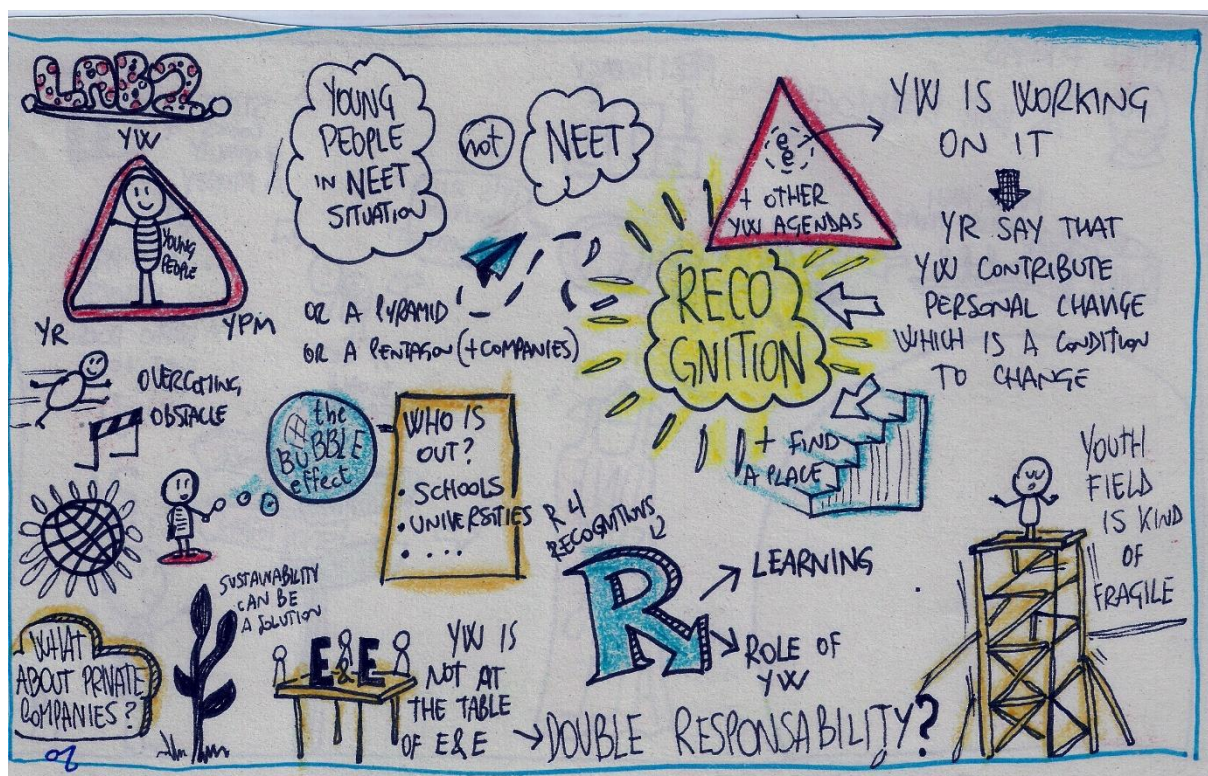 LAB2
YW
YOUNG
PEOPLE
YR
YPM
YOUNG
PEOPLE
IN NEET
SITUATION
not
NEET
OR A PYRAMID
OR A PENTAGON (+COMPANIES)
e
e
+ OTHER
YW AGENDAS
YW IS WORKING
ON IT
YR SAY THAT
YW CONTRIBUTE
PERSONAL CHANGE
WHICH IS A CONDITION
TO CHANGE
RECO
GNITION
+ FIND
A PLACE
OVERCOMING
OBSTACLE
the
BUBBLE
effect
WHO IS
OUT?
• SCHOOLS
• UNIVERSITIES
• ....
R 4
RECOGNITIONS
R
LEARNING
ROLE OF
YW
YOUTH
FIELD
IS KIND
OF
FRAGILE
SUSTAINABILITY
CAN BE
A SOLUTION
WHAT
ABOUT PRIVATE
COMPANIES?
E&E
YW IS
NOT AT
THE TABLE
OF E&E
DOUBLE RESPONSABILITY?